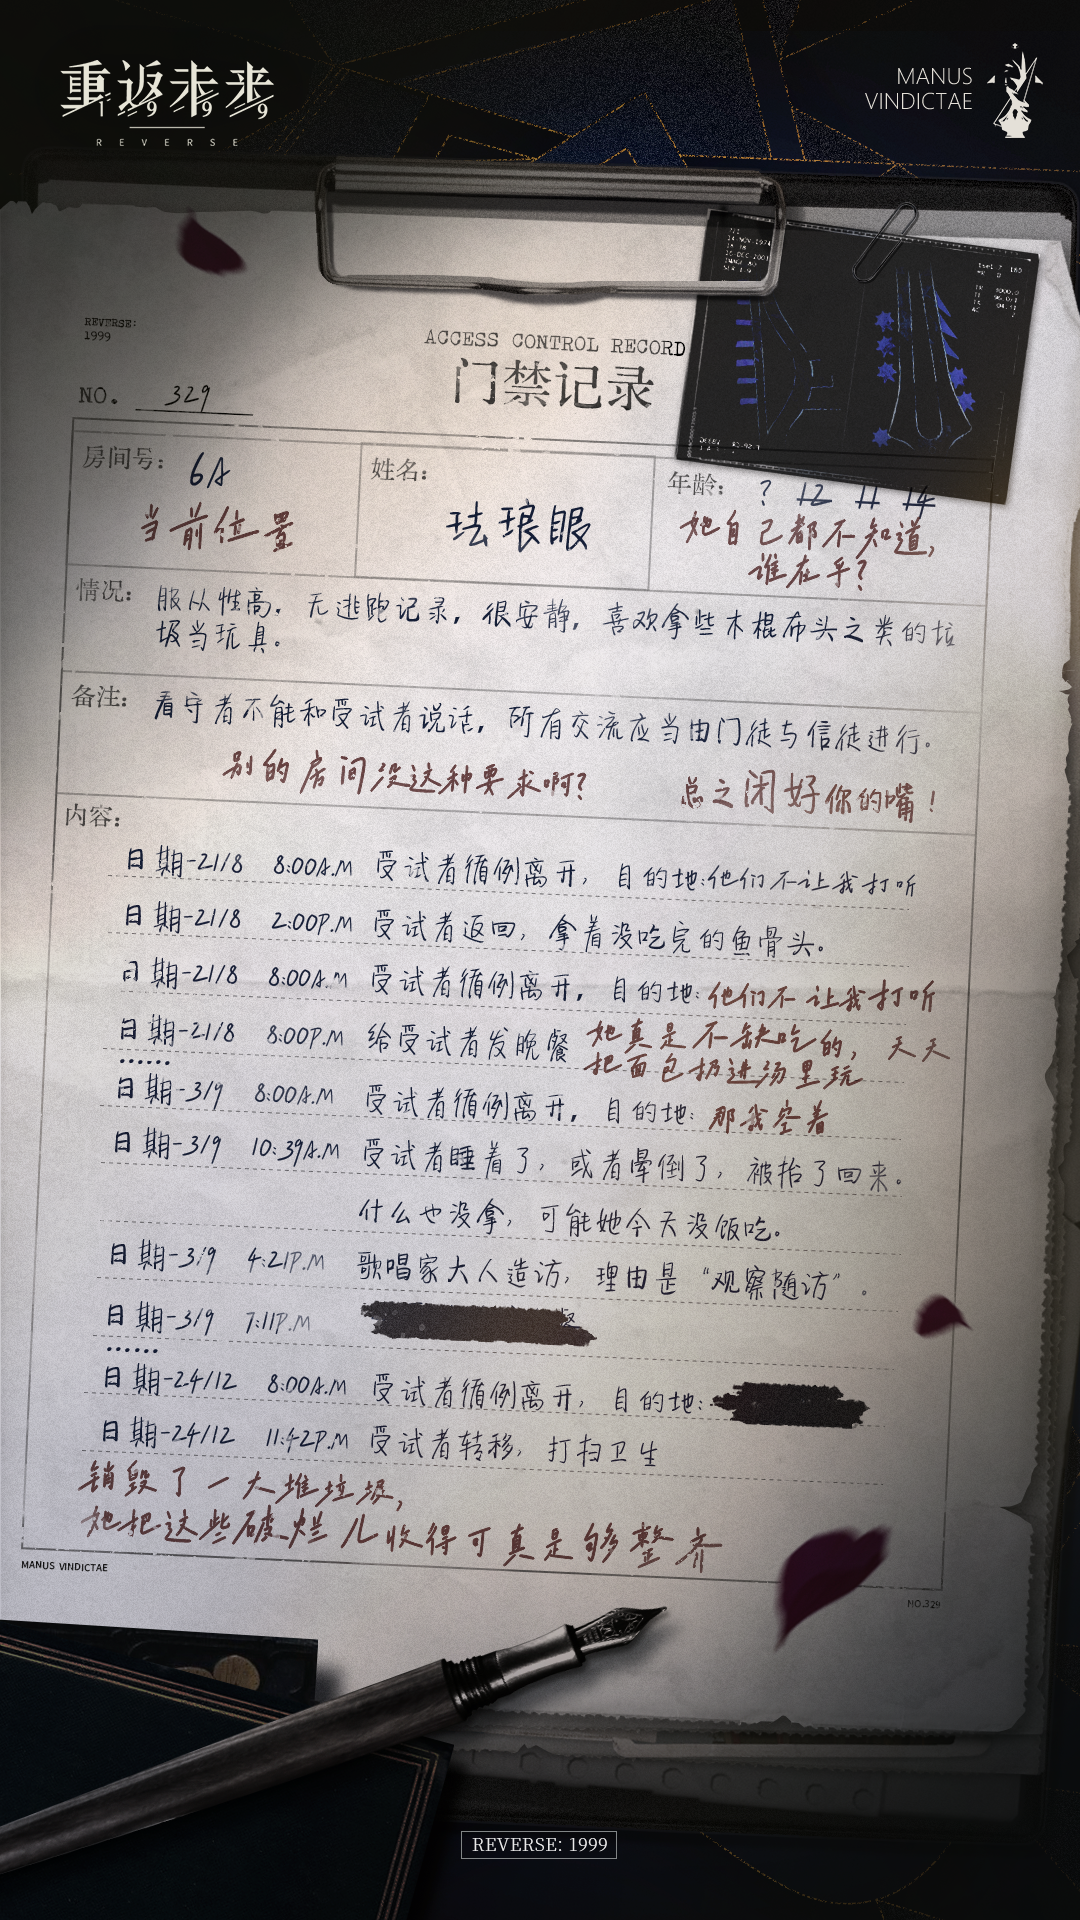 重返未来
1999
REVERSE
MANUS
VINDICTAE
REVERSE:
1999
ACCESS CONTROL RECORD
门禁记录
NO. 329
14 NOV 1974
房间号: 6A
当前位置
姓名:
珐琅眼
年龄: ? 12 11 14
她自己都不知道,
谁在乎?
情况: 服从性高. 无逃跑记录, 很安静, 喜欢拿些木棍布头之类的垃
圾当玩具.
备注: 看守者不能和受试者说话, 所有交流应当由门徒与信徒进行.
别的房间没这种要求啊? 总之闭好你的嘴!
内容:
日期-21/8 8:00A.M 受试者循例离开, 目的地:他们不让我打听
日期-21/8 2:00P.M 受试者返回, 拿着没吃完的鱼骨头.
日期-21/8 8:00A.M 受试者循例离开, 目的地: 他们不让我打听
日期-21/8 8:00P.M 给受试者发晚餐 她真是不缺吃的, 天天
把面包扔进汤里玩
......
日期-3/9 8:00A.M 受试者循例离开, 目的地: 那我空着
日期-3/9 10:39A.M 受试者睡着了, 或者晕倒了, 被抬了回来.
什么也没拿, 可能她今天没饭吃.
日期-3/9 4:21P.M 歌唱家大人造访, 理由是“观察随访”.
日期-3/9 7:11P.M
......
日期-24/12 8:00A.M 受试者循例离开, 目的地:
日期-24/12 11:42P.M 受试者转移, 打扫卫生
销毁了一大堆垃圾,
她把这些破烂儿收得可真是够整齐
MANUS VINDICTAE
NO.329
REVERSE: 1999